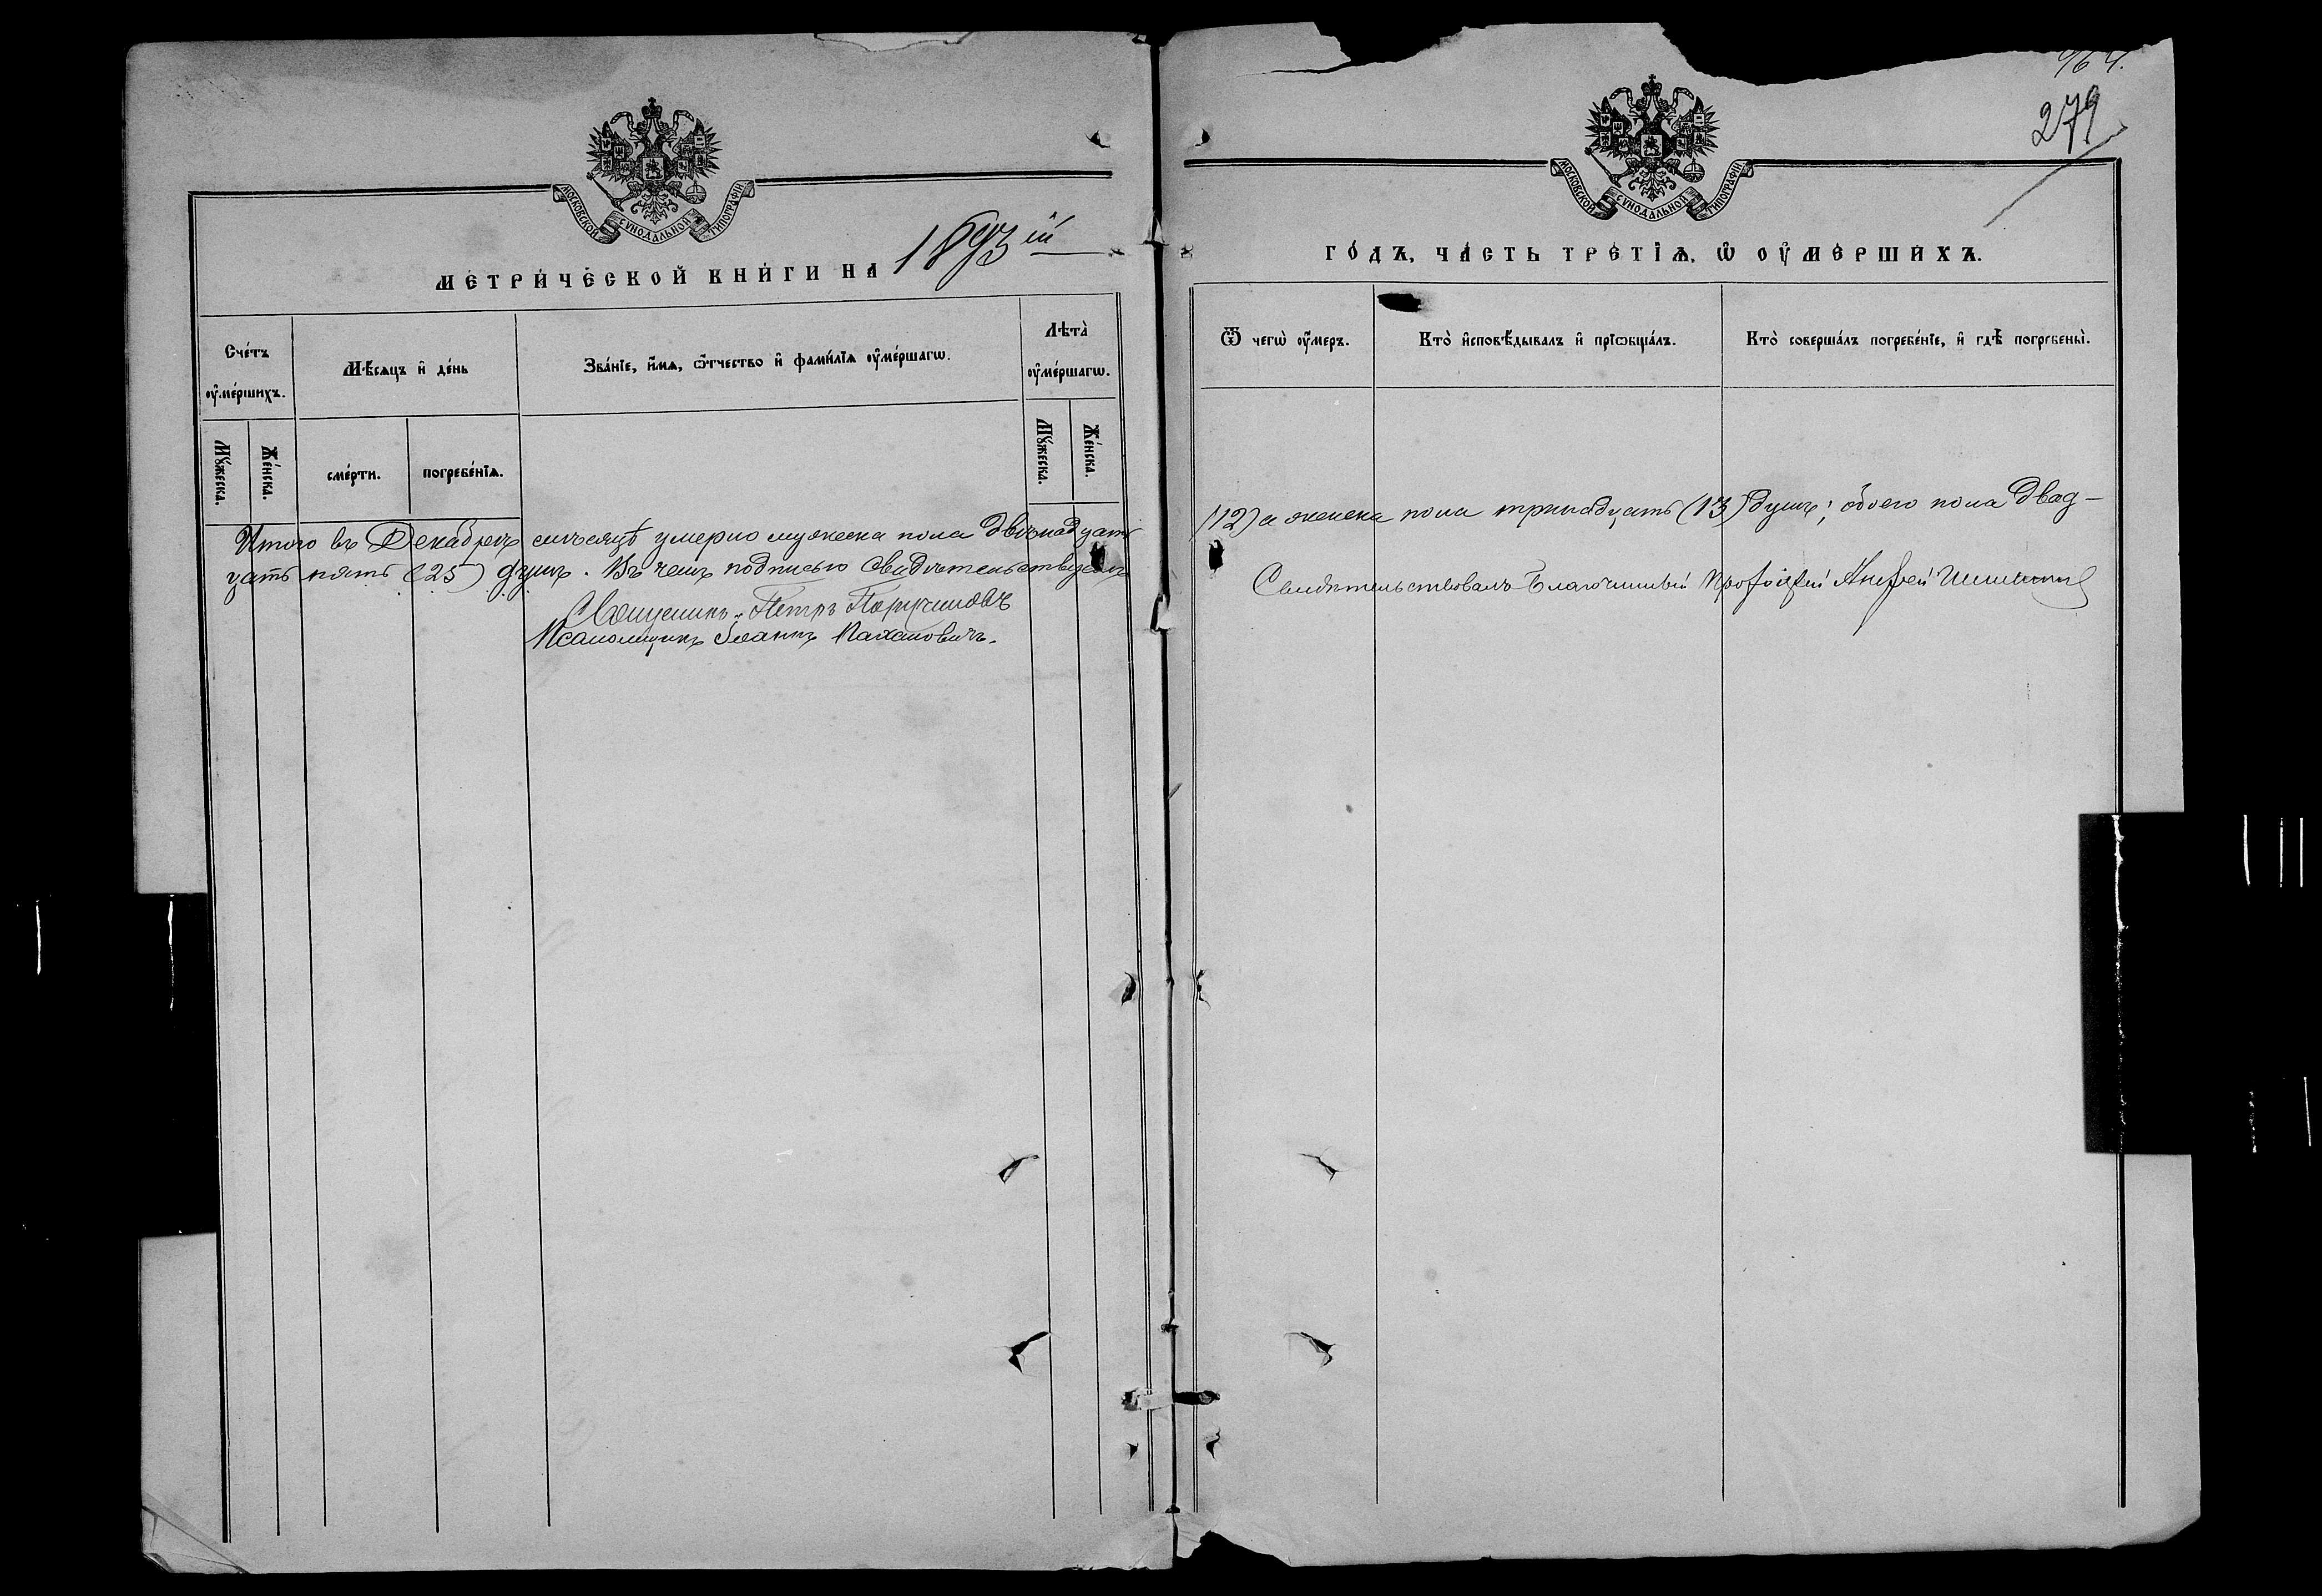 МОСКОВСКОЙ СѴНОДАЛЬНОЙ ТИПОГРАФІИ
МЕТРИ́ЧЕСКОЙ КНИ́ГИ НА 1893 ій
Сче́тъ ᲂу҆ме́ршихъ.
Мѣ́сяцъ и҆ де́нь
Зва́нїе, и҆́мѧ, ѻ҆́тчество и҆ фами́лїѧ ᲂу҆ме́ршагѡ.
Лѣта̀ ᲂу҆ме́ршагѡ.
Мꙋ́жеска.
Же́нска.
сме́рти.
погребе́нїѧ.
Мꙋ́жеска.
Же́нска.
Итого въ Декабрѣ мѣсяцѣ умерло мужеска пола двѣнадцать
цать пять (25) душъ. Въ чемъ подписью свидѣтельствуемъ
Священникъ Петръ
Псаломщикъ Іоаннъ
964.
279
МОСКОВСКОЙ СѴНОДАЛЬНОЙ ТИПОГРАФІИ
ГО́ДЪ, ЧА́СТЬ ТРЕ́ТЇѦ, Ѡ҆ ОУ҆МЕ́РШИХЪ.
Ѿ чегѡ̀ ᲂу҆́меръ.
Кто̀ и҆сповѣ́дывалъ и҆ прїѡбща́лъ.
Кто̀ соверша́лъ погребе́нїе, и҆ гдѣ̀ погребены̀.
(12) а женска пола тринадцать (13) душъ; обоего пола двад-
Свидѣтельствовалъ Благочинный Протоіерей Андрей